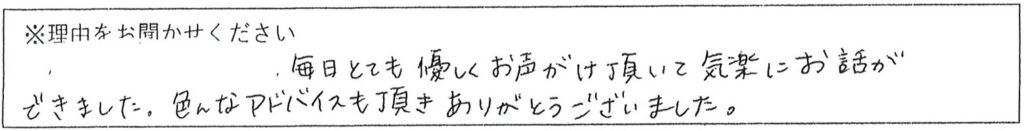 ※理由をお聞かせください
毎日とても優しくお声がけ頂いて気楽にお話が
できました。色んなアドバイスも頂きありがとうございました。